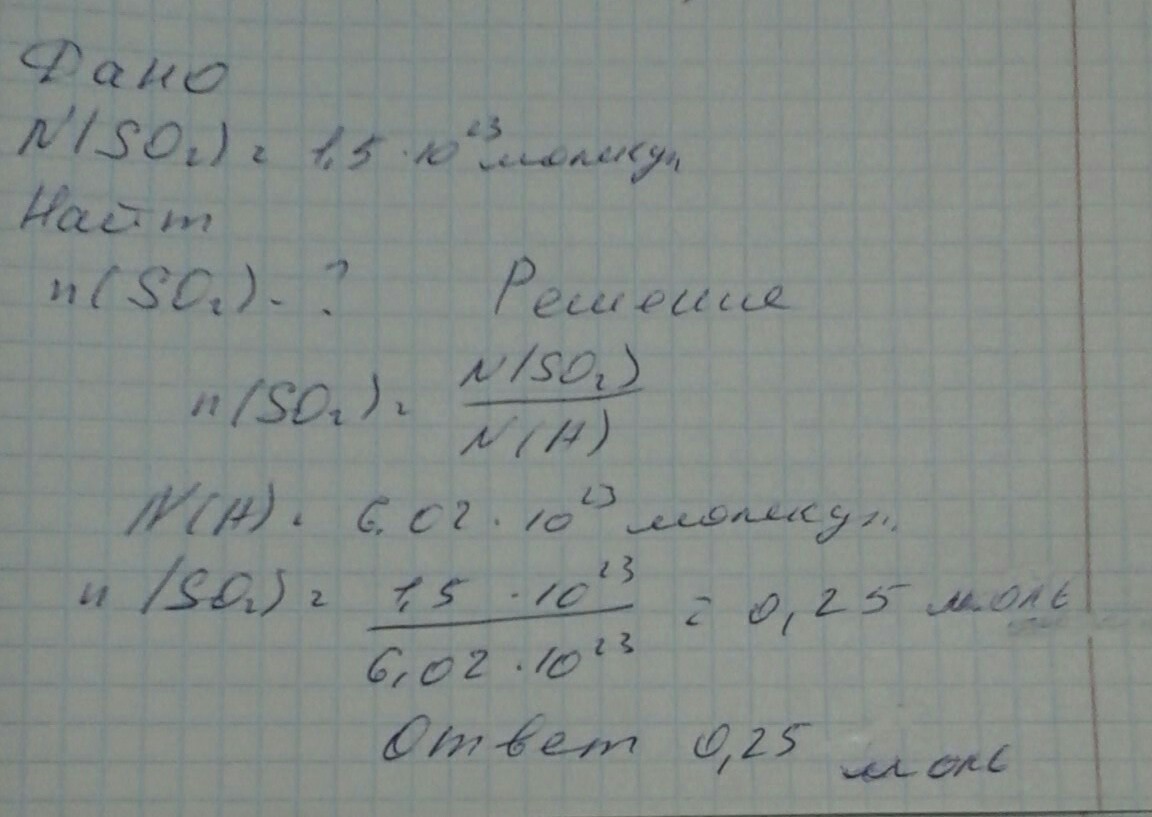 Дано
N(SO₂) = 1,5 · 10²³ молекул
Найт
n(SO₂) - ?
Решение
n(SO₂) = N(SO₂) / N(A)
N(A) = 6,02 · 10²³ молекул.
n(SO₂) = 1,5 · 10²³ / 6,02 · 10²³ = 0,25 моль
Ответ 0,25 моль